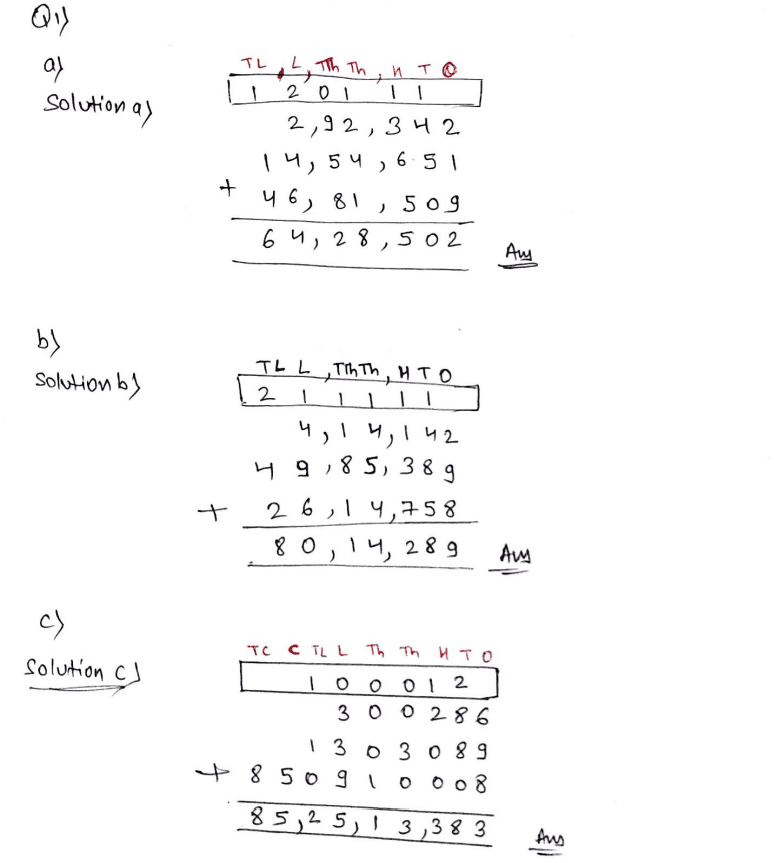 Q1)
a)
Solution a)
TL , L , TTh Th , H T O
1 2 0 1 1 1
2,92,342
14,54,651
+ 46,81,509
64,28,502 Ans
b)
Solution b)
TL L , TTh Th , H T O
2 1 1 1 1 1
4,14,142
49,85,389
+ 26,14,758
80,14,289 Ans
c)
Solution c)
TC C TL L Th Th H T O
1 0 0 0 1 2
3 0 0 2 8 6
1 3 0 3 0 8 9
+ 8 5 0 9 1 0 0 0 8
85,25,13,383 Ans